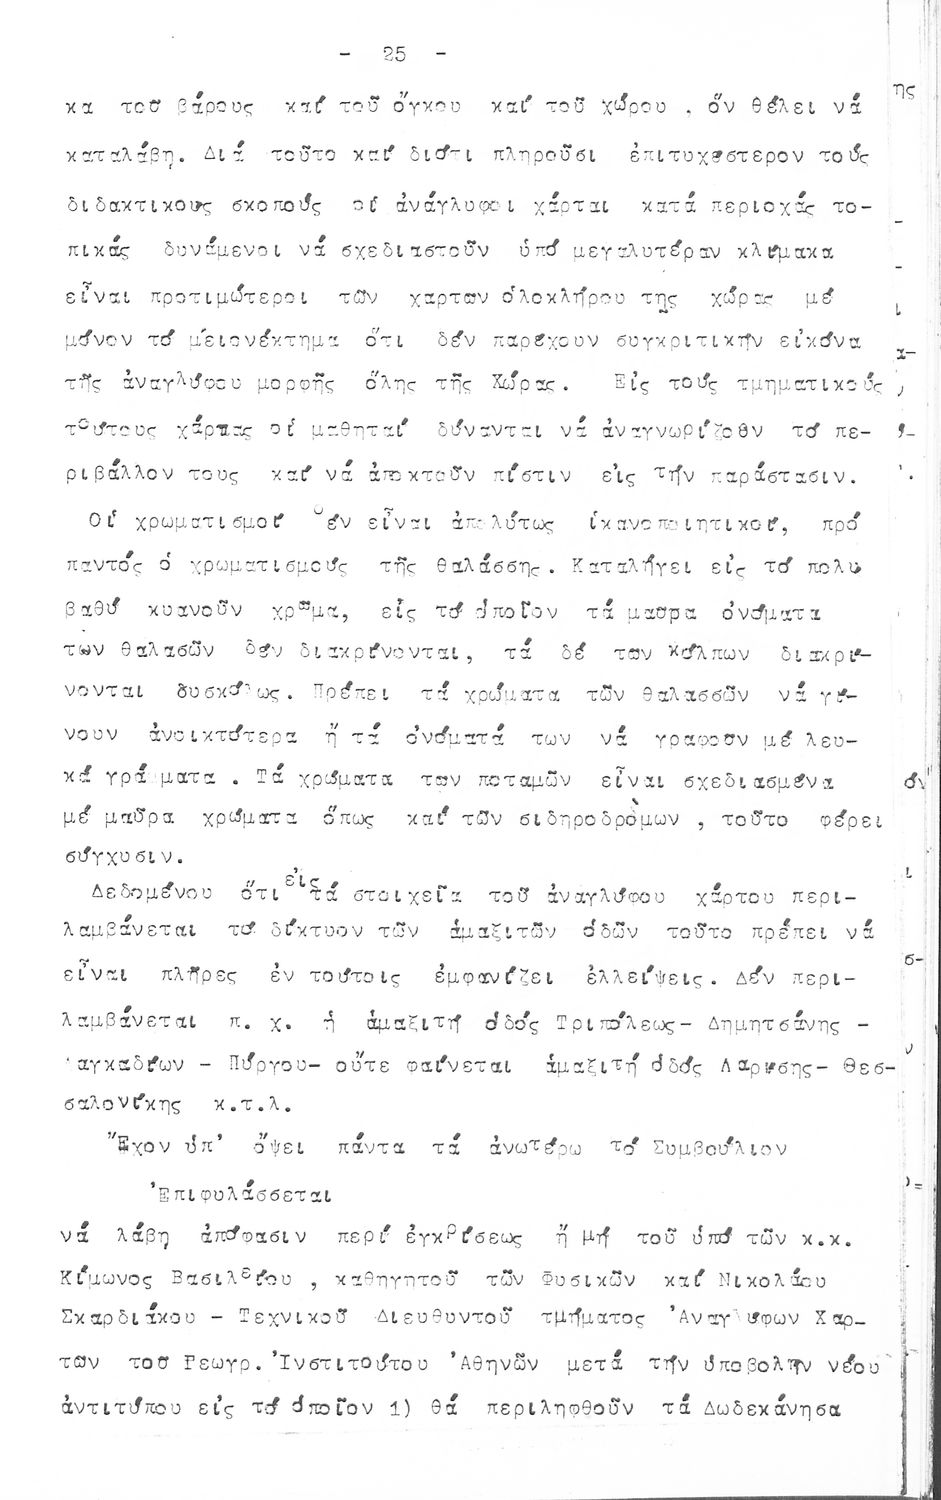 - 25 -
κα τοῦ βάρους καί τοῦ ὄγκου καί τοῦ χώρου , ὅν θέλει νά
καταλάβῃ. Διά τοῦτο καί διότι πληροῦσι ἐπιτυχέστερον τούς
διδακτικους σκοπούς οἱ ἀνάγλυφοι χάρται κατά περιοχάς το-
πικάς δυνάμενοι νά σχεδιαστοῦν ὑπό μεγαλυτέραν κλίμακα
εἶναι προτιμώτεροι τῶν χαρτων ὁλοκλήρου της χώρας μέ
μόνον τό μειονέκτημα ὅτι δέν παρέχουν συγκριτικήν εἰκόνα
τῆς ἀναγλύφου μορφῆς ὅλης τῆς Χώρας. Εἰς τούς τμηματικούς
τούτους χάρτας οἱ μαθηταί δύνανται νά ἀναγνωρίζουν τό πε-
ριβάλλον τους καί νά ἀποκτοῦν πίστιν εἰς τήν παράστασιν.
Οἱ χρωματισμοί δέν εἶναι ἀπολύτως ἱκανοποιητικοί, πρό
παντός ὁ χρωματισμούς τῆς θαλάσσης. Καταλήγει εἰς τό πολύ
βαθύ κυανοῦν χρῶμα, εἰς τό ὁποῖον τά μαῦρα ὀνόματα
των θαλασῶν δέν διακρίνονται, τά δέ των κόλπων διακρί-
νονται δυσκόλως. Πρέπει τά χρώματα τῶν θαλασσῶν νά γί-
νουν ἀνοικτότερα ἤ τά ὀνόματά των νά γραφοῦν μέ λευ-
κά γράμματα . Τά χρώματα των ποταμῶν εἶναι σχεδιασμένα
μέ μαῦρα χρώματα ὅπως καί τῶν σιδηροδρόμων , τοῦτο φέρει
σύγχυσιν.
Δεδομένου ὅτι εἰς τά στοιχεῖα τοῦ ἀναγλύφου χάρτου περι-
λαμβάνεται τό δίκτυον τῶν ἁμαξιτῶν ὁδῶν τοῦτο πρέπει νά
εἶναι πλῆρες ἐν τούτοις ἐμφανίζει ἐλλείψεις. Δέν περι-
λαμβάνεται π. χ. ἡ ἁμαξιτή ὁδός Τριπόλεως- Δημητσάνης -
αγκαδίων - Πύργου- οὔτε φαίνεται ἁμαξιτή ὁδός Λαρίσης- Θεσ-
σαλονίκης κ.τ.λ.
Ἔχον ὑπ' ὄψει πάντα τά ἀνωτέρω τό Συμβούλιον
Ἐπιφυλάσσεται
νά λάβῃ ἀπόφασιν περί ἐγκρίσεως ἤ μή τοῦ ὑπό τῶν κ.κ.
Κίμωνος Βασιλείου , καθηγητοῦ τῶν Φυσικῶν καί Νικολάου
Σκαρδιάκου - Τεχνικοῦ Διευθυντοῦ τμήματος Ἀναγλύφων Χαρ-
τῶν τοῦ Γεωγρ. Ἰνστιτούτου Ἀθηνῶν μετά τήν ὑποβολήν νέου
ἀντιτύπου εἰς τό ὁποῖον 1) θά περιληφθοῦν τά Δωδεκάνησα